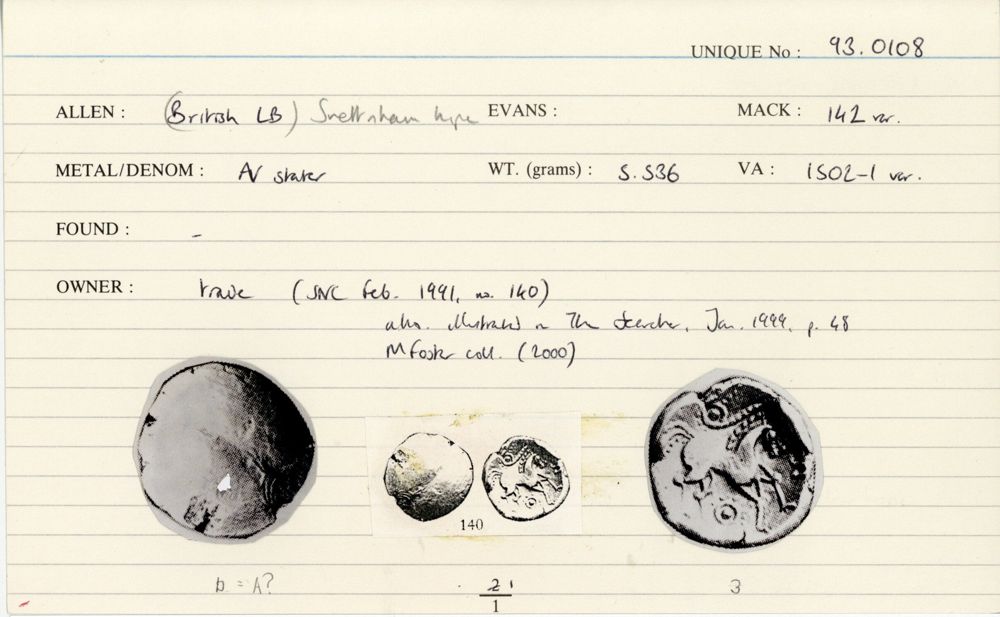 UNIQUE No : 93.0108
ALLEN : (British LB) Snettisham type EVANS : MACK : 142 var.
METAL/DENOM : AV stater WT. (grams) : 5.536 VA : 1502-1 var.
FOUND : -
OWNER : trade (SNC Feb. 1991, no. 140)
also illustrated in The Searcher, Jan. 1999, p. 48
M Foster coll. (2000)
140
= A? 1 3
1